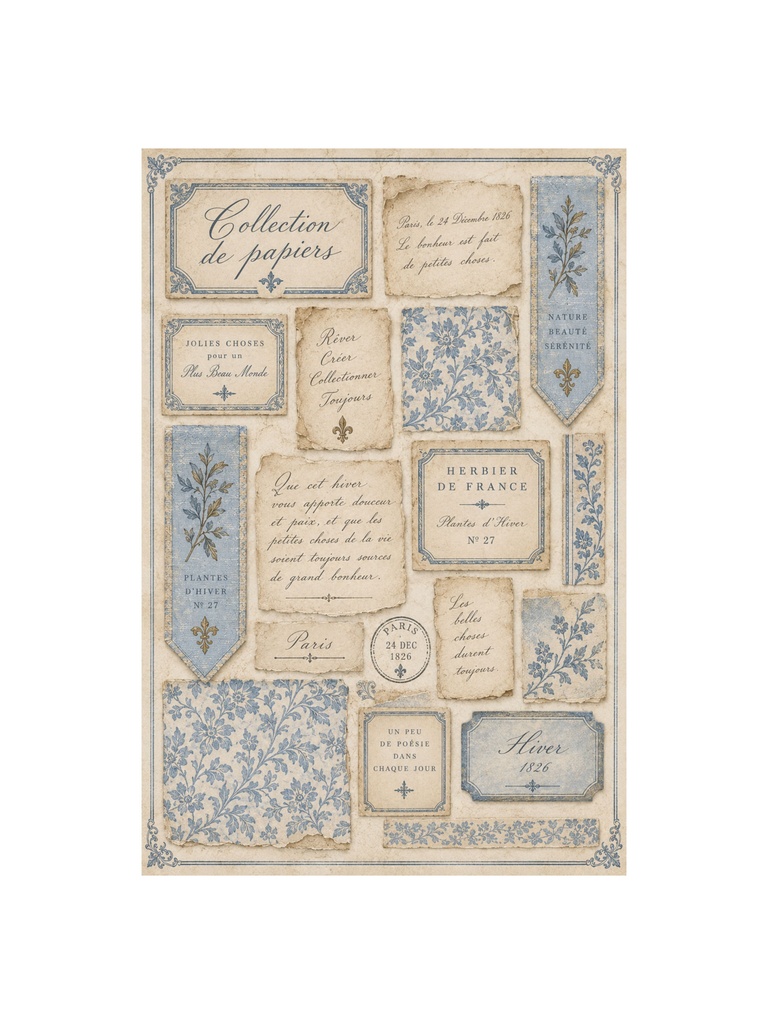 Collection
de papiers
Paris, le 24 Décembre 1826
Le bonheur est fait
de petites choses.
NATURE
BEAUTÉ
SÉRÉNITÉ
JOLIES CHOSES
pour un
Plus Beau Monde
Rêver
Créer
Collectionner
Toujours
Que cet hiver
vous apporte douceur
et paix, et que les
petites choses de la vie
soient toujours sources
de grand bonheur.
HERBIER
DE FRANCE
Plantes d'Hiver
Nº 27
PLANTES
D'HIVER
Nº 27
Paris
PARIS
24 DEC
1826
Les
belles
choses
durent
toujours.
UN PEU
DE POÉSIE
DANS
CHAQUE JOUR
Hiver
1826